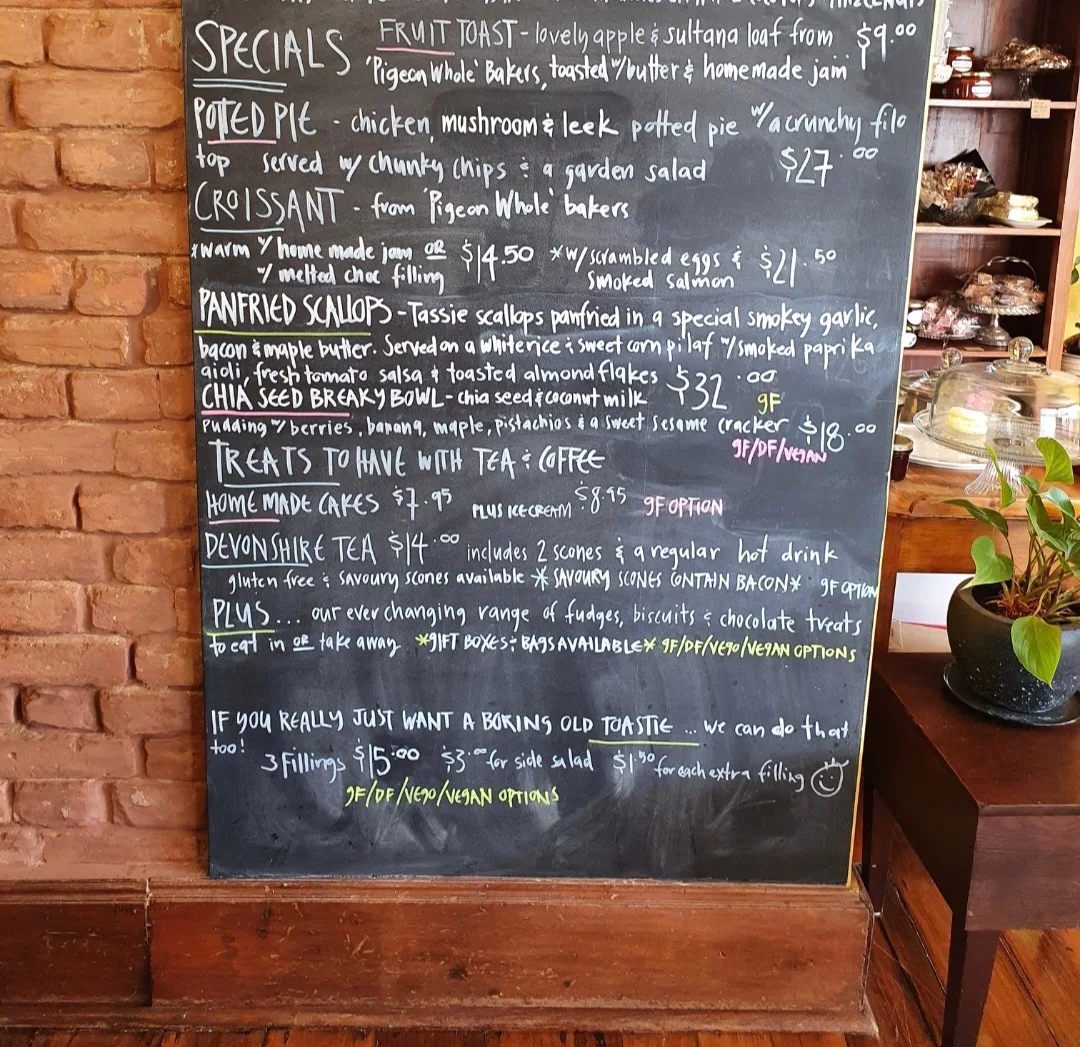 SPECIALS FRUIT TOAST - lovely apple & sultana loaf from $9.00
'Pigeon Whole' Bakers, toasted w/butter & homemade jam
POTTED PIE - chicken, mushroom & leek potted pie w/a crunchy filo
top served w/ chunky chips & a garden salad $27.00
CROISSANT - from 'Pigeon Whole' bakers
*warm w/ home made jam OR $14.50 *w/ scrambled eggs & $21.50
w/ melted choc filling smoked salmon
PANFRIED SCALLOPS - Tassie scallops panfried in a special smokey garlic,
bacon & maple butter. Served on a white rice & sweet corn pilaf w/ smoked paprika
aioli, fresh tomato salsa & toasted almond flakes $32.00 gF
CHIA SEED BREAKY BOWL - chia seed & coconut milk
pudding w/ berries, banana, maple, pistachios & a sweet sesame cracker $18.00
gF/DF/VEgAN
TREATS TO HAVE WITH TEA & COFFEE
HOME MADE CAKES $7.95 PLUS ICECREAM $8.95 gF OPTION
DEVONSHIRE TEA $14.00 includes 2 scones & a regular hot drink
gluten free & savoury scones available * SAVOURY SCONES CONTAIN BACON* gF OPTION
PLUS... our ever changing range of fudges, biscuits & chocolate treats
to eat in OR take away *gIFT BOXES & BAgS AVAILABLE* gF/DF/VEgO/VEgAN OPTIONS
IF YOU REALLY JUST WANT A BORING OLD TOASTIE ... we can do that
too!
3 Fillings $15.00 $3.00 for side salad $1.50 for each extra filling
gF/DF/VEgO/VEgAN OPTIONS